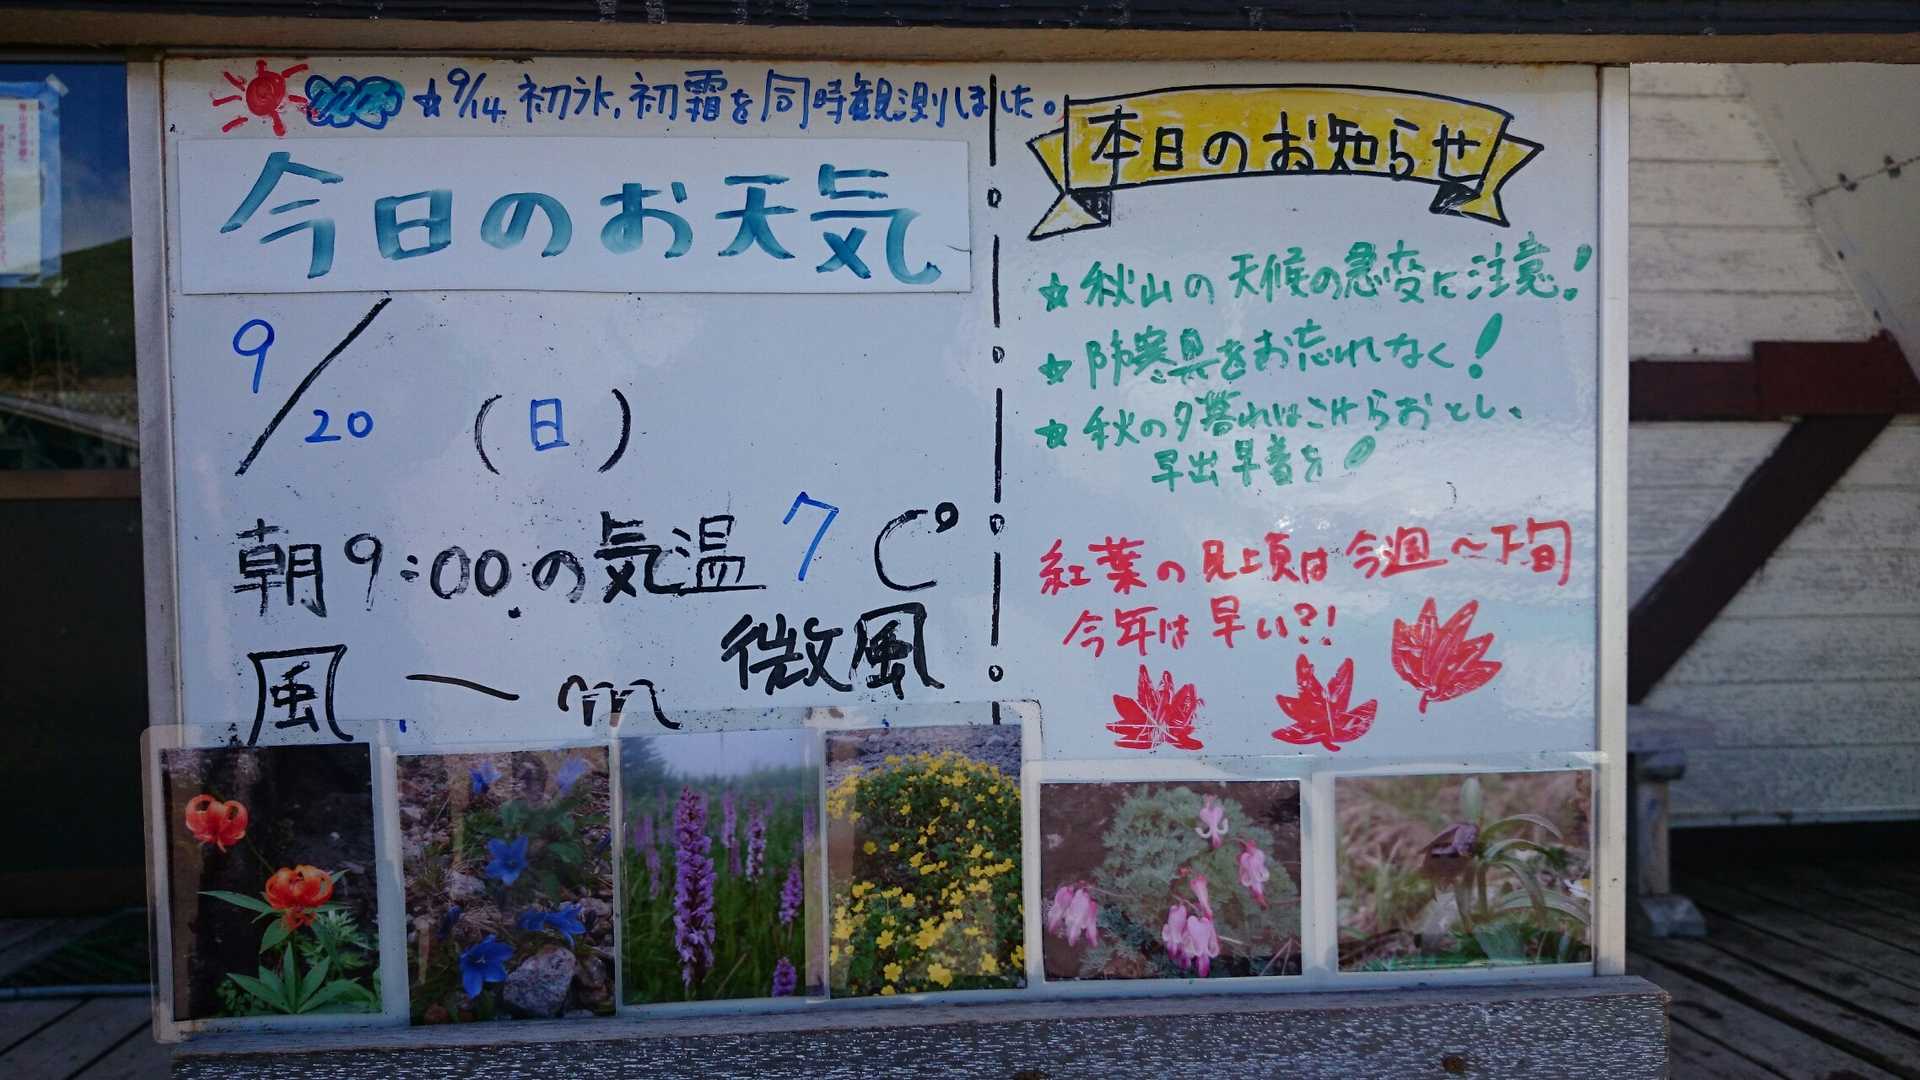 ★9/14 初氷,初霜を同時観測しました。
今日のお天気
9/20 (日)
朝9:00の気温 7 C°
風 〜 m 微風
本日のお知らせ
☆秋山の天候の急変に注意!
☆防寒具をお忘れなく!
☆秋の夕暮れはこけらおとし、
早出早着を!
紅葉の見頃は今週〜下旬
今年は早い?!